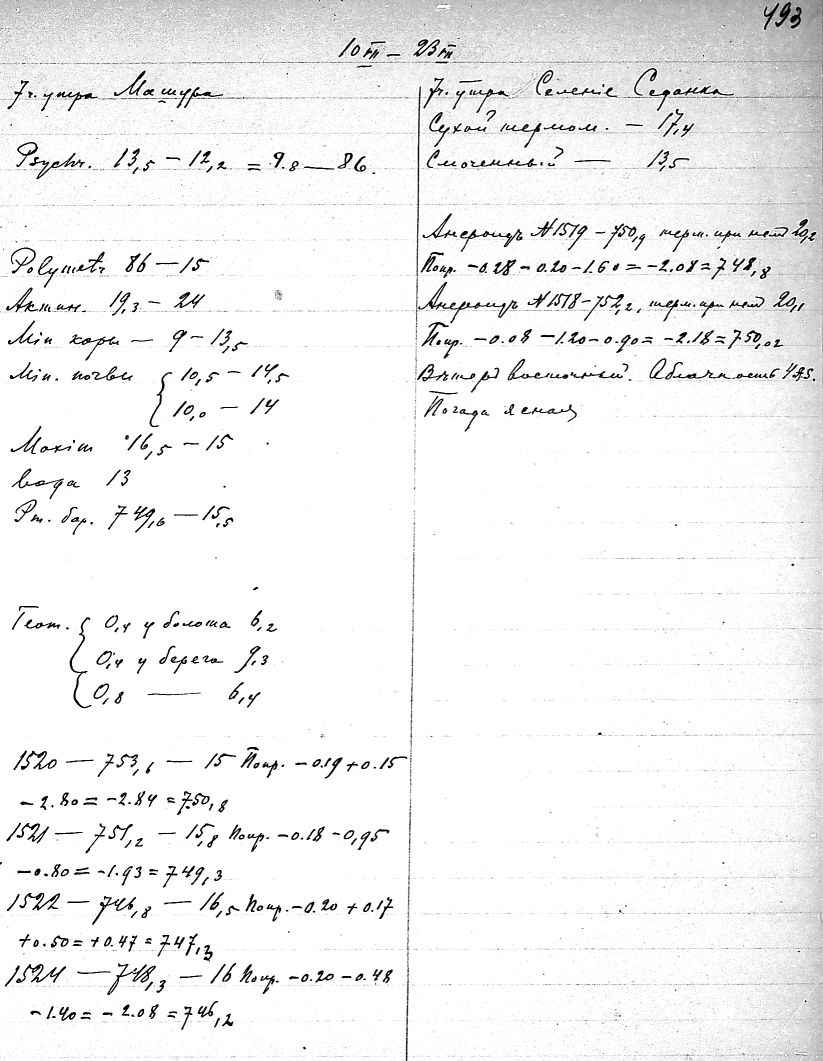 493
10 VII – 23 VII
7 ч. утра Машура
Psychr. 13,5 – 12,2 = 9.8 — 86.
Polymetr 86 – 15
Актин. 19,3 – 24
Min коры – 9 – 13,5
Min. почвы { 10,5 – 14,5
10,0 – 14
Maxim 16,5 – 15
вода 13
Рт. бар. 749,6 – 15,5
Геот. { 0,4 у болота 6,2
0,4 у берега 9,3
0,8 — 6,4
1520 — 753,6 — 15 Попр. –0.19 +0.15
–2.80 = –2.84 = 750,8
1521 — 751,2 – 15,8 Попр. –0.18 –0,95
–0.80 = –1.93 = 749,3
1522 – 746,8 – 16,5 Попр. –0.20 +0.17
+0.50 = +0.47 = 747,3
1524 — 748,3 – 16 Попр. –0.20 –0.48
–1.40 = –2.08 = 746,2
7 ч. утра Селеніе Седанка
Сухой термом. – 17,4
Смоченный — 13,5
Анероидъ N 1519 – 750,9 терм. при немъ 20,2
Попр. –0.28 –0.20 –1.60 = –2.08 = 748,8
Анероидъ N 1518 – 752,2, терм. при немъ 20,1
Попр. –0.08 –1.20 –0.90 = –2.18 = 750,02
Вѣтеръ восточный. Облачность
Погода ясная